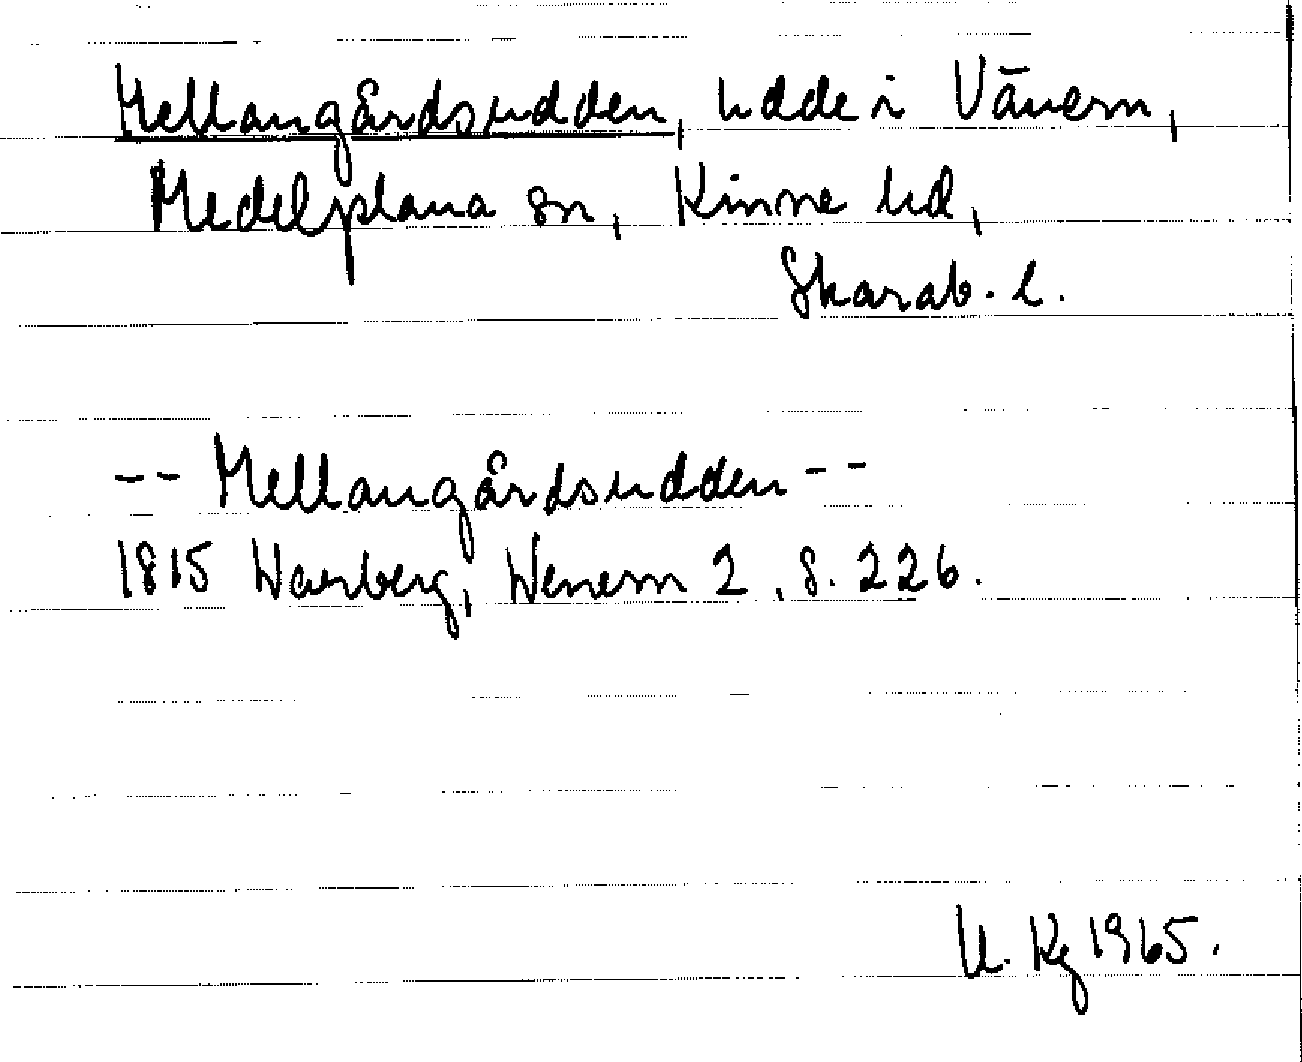 Mellangårdsudden, udde i Vänern,
Medelplana sn, Kinne hd,
Skarab. l.
-- Mellangårdsudden --
1815 Warberg, Wenern 2, s. 226.
U. Kg 1965.